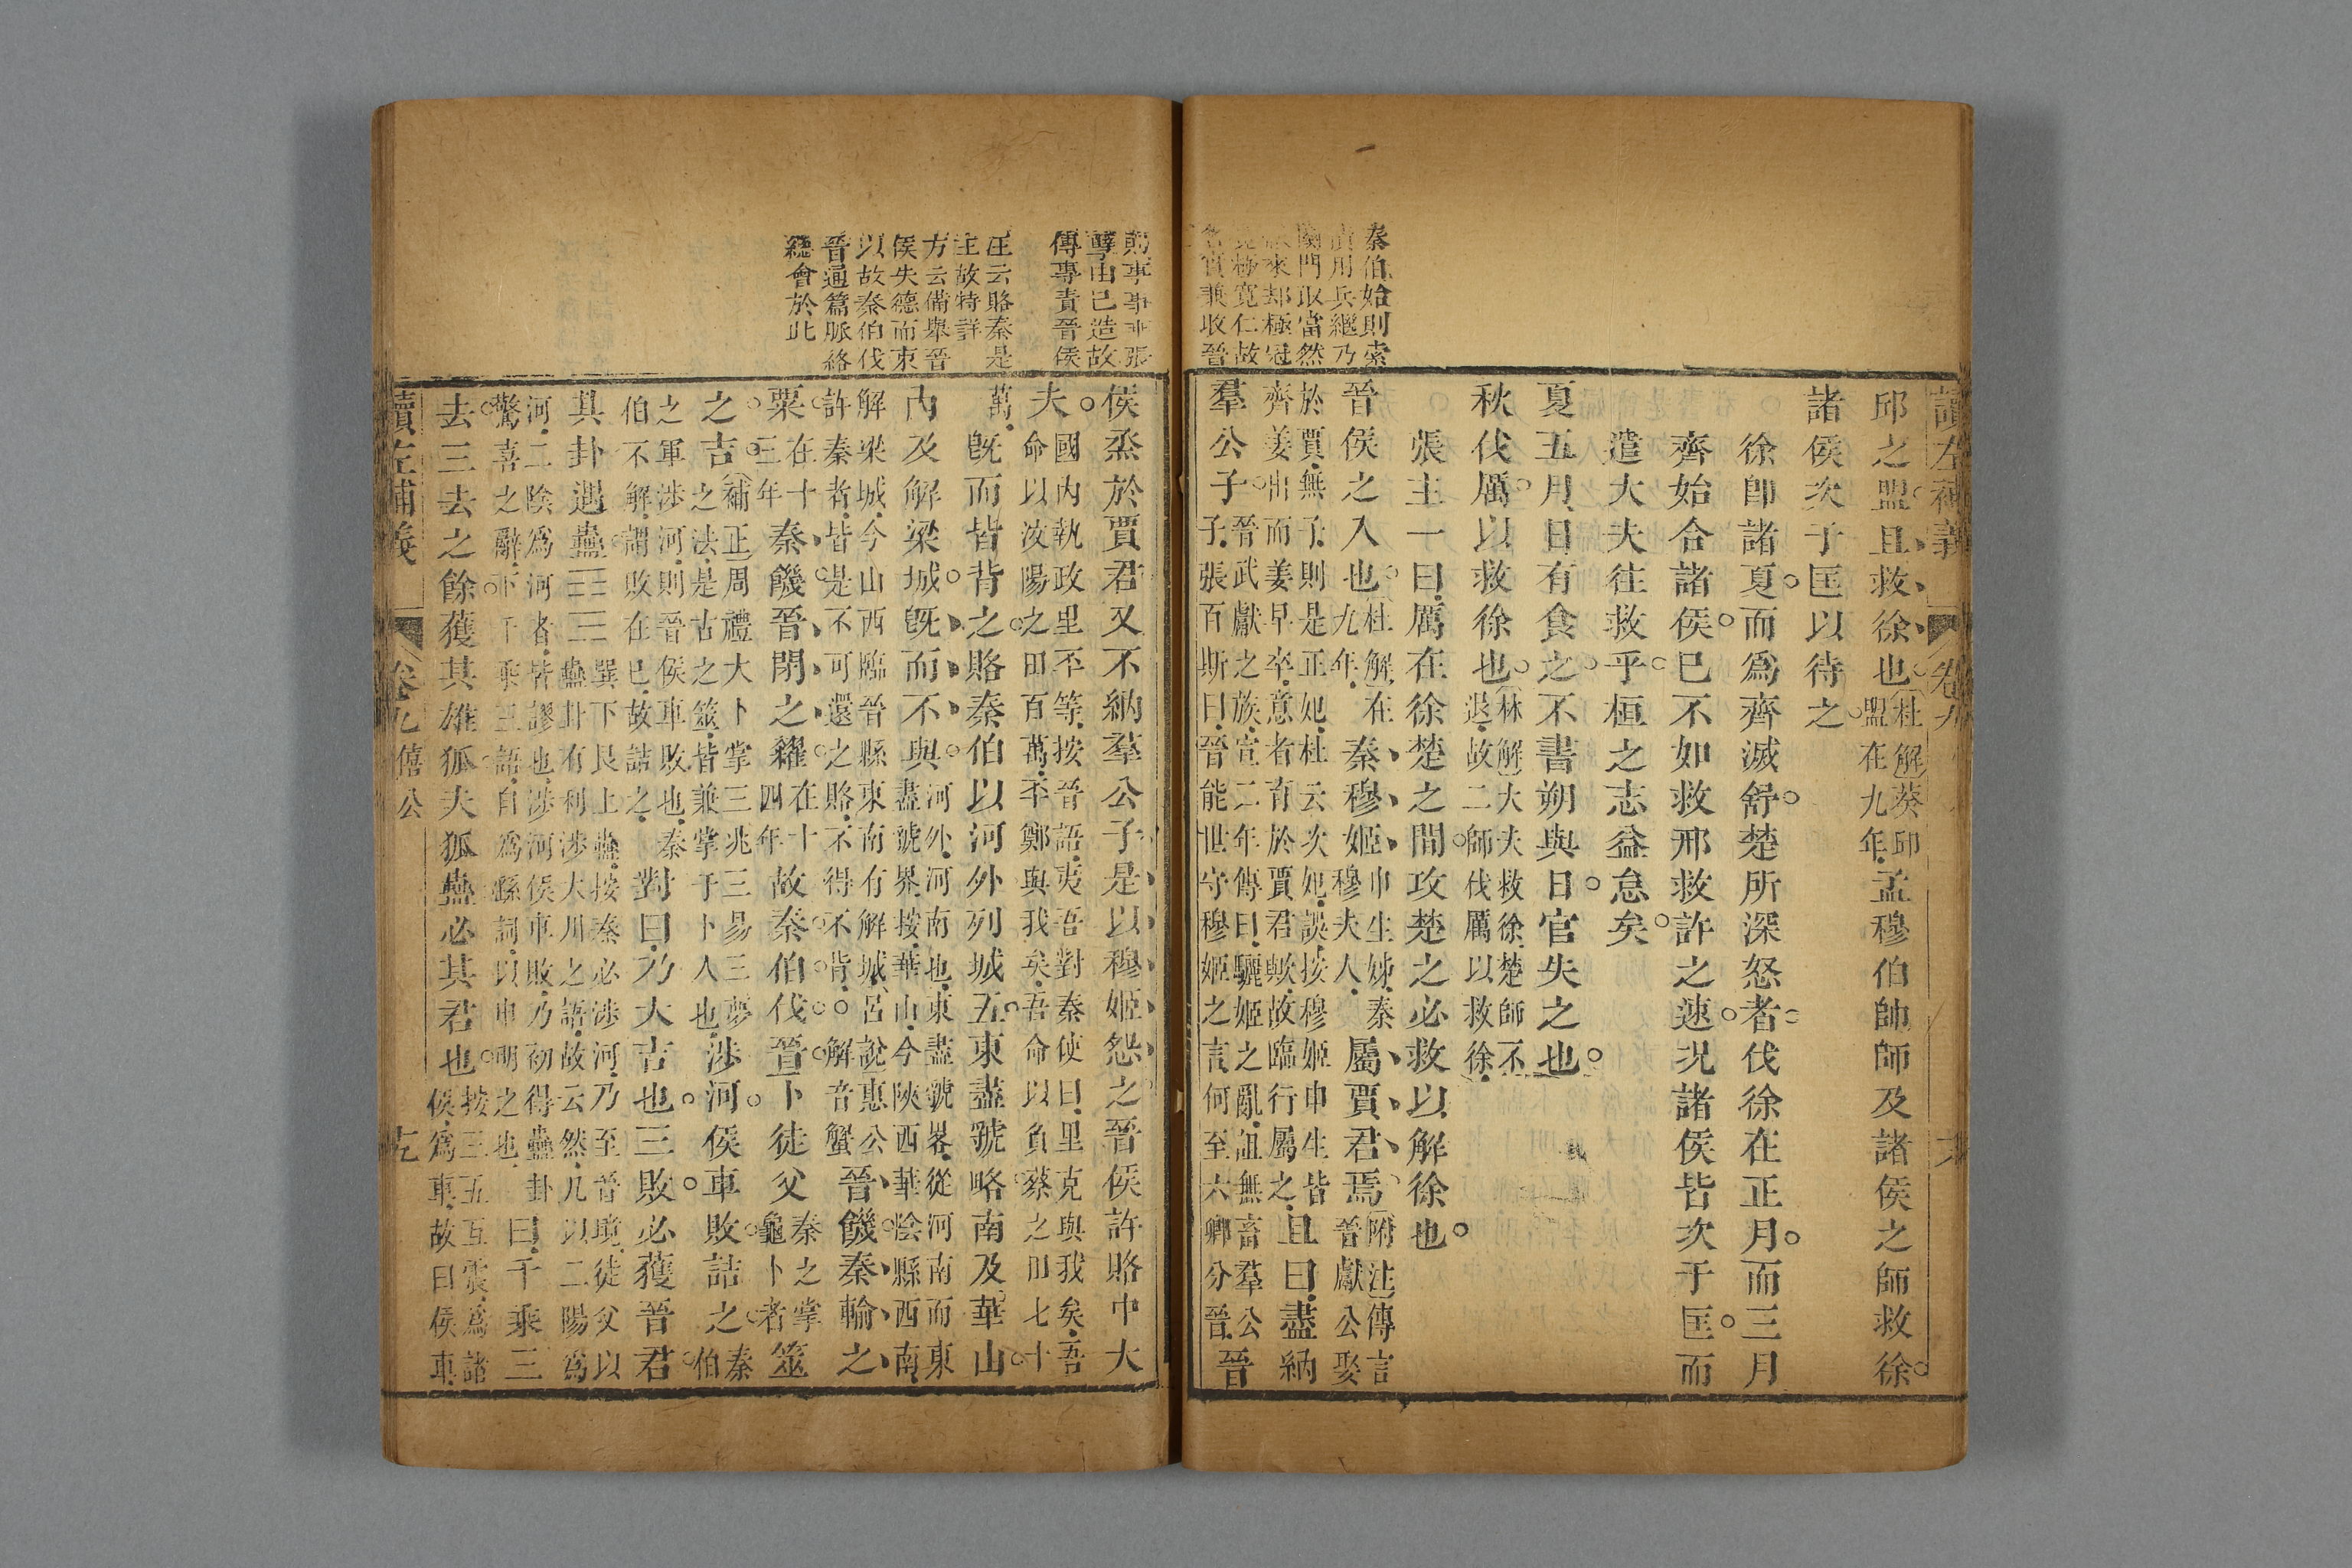 讀左補義
卷九
邱之盟且救徐也杜解葵邱盟在九年孟穆伯帥師及諸侯之師救徐
諸侯次于匡以待之
徐卽諸夏而爲齊滅舒楚所深怒者伐徐在正月而三月
齊始合諸侯已不如救邢救許之速況諸侯皆次于匡而
遣大夫往救乎桓之志益怠矣
夏五月日有食之不書朔與日官失之也
秋伐厲以救徐也林解大夫救徐楚師不退故二師伐厲以救徐
張主一曰厲在徐楚之間攻楚之必救以解徐也
晉侯之入也杜解在九年秦穆姬申生姊秦穆夫人屬賈君焉附注傳言晉獻公娶
於賈無子則是正妃杜云次妃誤按穆姬申生皆齊姜出而姜早卒意者育於賈君歟故臨行屬之且曰盡納
羣公子晉武獻之族宣二年傳曰驪姬之亂詛無畜羣公子張百斯曰晉能世守穆姬之言何至六卿分晉晉
秦伯始則索
侯烝於賈君又不納羣公子是以穆姬怨之晉侯許賂中大
夫國內執政里丕等按晉語夷吾對秦使曰里克與我矣吾命以汝陽之田百萬丕鄭與我矣吾命以負蔡之田七十
萬既而皆背之賂秦伯以河外列城五東盡虢略南及華山
內及解梁城既而不與河外河南也東盡虢畧從河南而東盡虢界按華山今陝西華陰縣西南
解梁城今山西臨晉縣東南有解城呂說惠公許秦者皆是不可還之賂不得不背解音蟹晉饑秦輸之
粟在十三年秦饑晉閉之糴在十四年故秦伯伐晉卜徒父秦之掌龜卜者筮
之吉補正周禮大卜掌三兆三易三夢之法是古之筮皆兼掌于卜人也涉河侯車敗詰之秦伯
之軍涉河則晉侯車敗也秦伯不解謂敗在已故詰之對曰乃大吉也三敗必獲晉君
其卦遇蠱巽下艮上蠱按秦必涉河乃至晉境徒父以蠱卦有利涉大川之語故云然凡以二陽爲
河二陰爲河者皆謬也涉河侯車敗乃初得蠱卦驚喜之辭下千乘三語自爲繇詞以申明之也曰千乘三
去三去之餘獲其雄狐夫狐蠱必其君也按三五互震爲諸侯爲車故曰侯車
孽由已造故
傳專責晉侯
汪云賂秦是
主故特詳
方云備舉晉
侯失德而束
以故秦伯伐
晉通篇脈絡
總會於此
讀左補義
卷九僖公